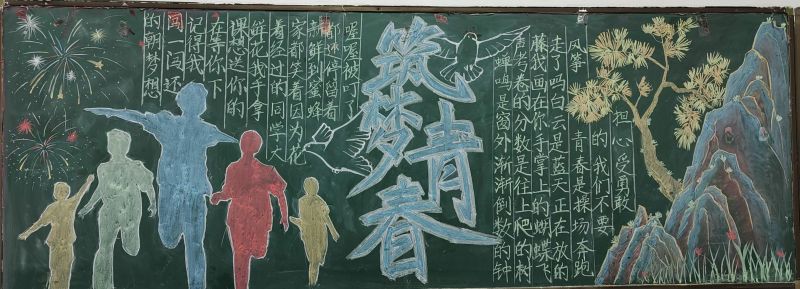 筑梦
青春
的朝梦想
闯一闯还
记得我
在等你下
课想送你的
鲜花我手拿
着经过的同学人
家都笑着因为花
新鲜到蜜蜂
停留着
喔喔被叮了
蝉鸣是窗外渐渐倒数的钟
声考卷的分数是往上爬的树
藤我画在你手掌上的蝴蝶飞
走了吗白云是蓝天正在放的
风筝
青春是操场奔跑
的我们不要
担心受勇敢